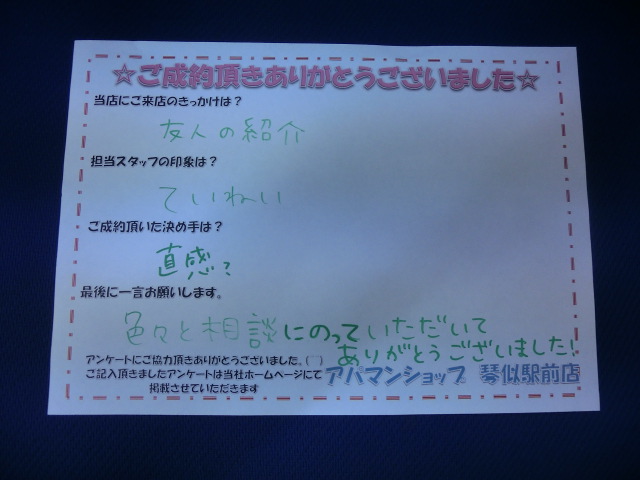 ☆ご成約頂きありがとうございました☆
当店にご来店のきっかけは？
友人の紹介
担当スタッフの印象は？
ていねい
ご成約頂いた決め手は？
直感？
最後に一言お願いします。
色々と相談にのっていただいて
ありがとうございました!
アンケートにご協力頂きありがとうございました。(￣￣)
ご記入頂きましたアンケートは当社ホームページにて
掲載させていただきます
アパマンショップ 琴似駅前店